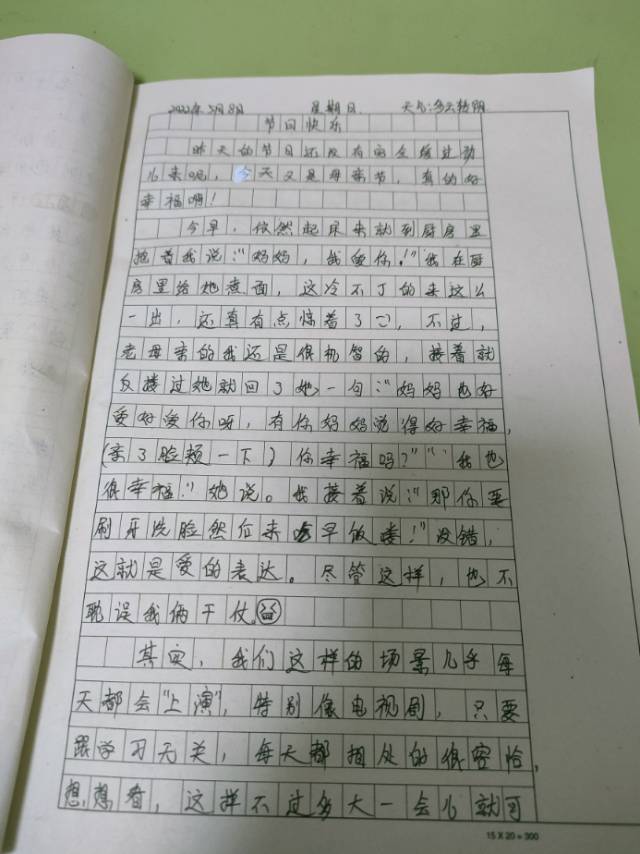 2022年5月8日 星期日 天气:多云转阴
节日快乐
昨天的节日还没有完全缓过劲
儿来呢,今天又是母亲节,真的好
幸福啊!
今早,依然起床来就到厨房里
抱着我说:"妈妈,我爱你!"我在厨
房里给她煮面,这冷不丁的来这么
一出,还真有点惊着了∵,不过,
老母亲的我还是很机智的,接着就
反搂过她就回了她一句:"妈妈也好
爱好爱你呀,有你妈妈觉得好幸福,
(亲了脸颊一下)你幸福吗?""我也
很幸福!"她说。我接着说:"那你要
刷牙洗脸然后来吃早饭喽!"没错,
这就是爱的表达。尽管这样,也不
耽误我俩干仗。
其实,我们这样的场景几乎每
天都会"上演",特别像电视剧,只要
跟学习无关,每天都相处的很容恰,
想想看,这样不过多大一会儿就可
15 X 20 = 300